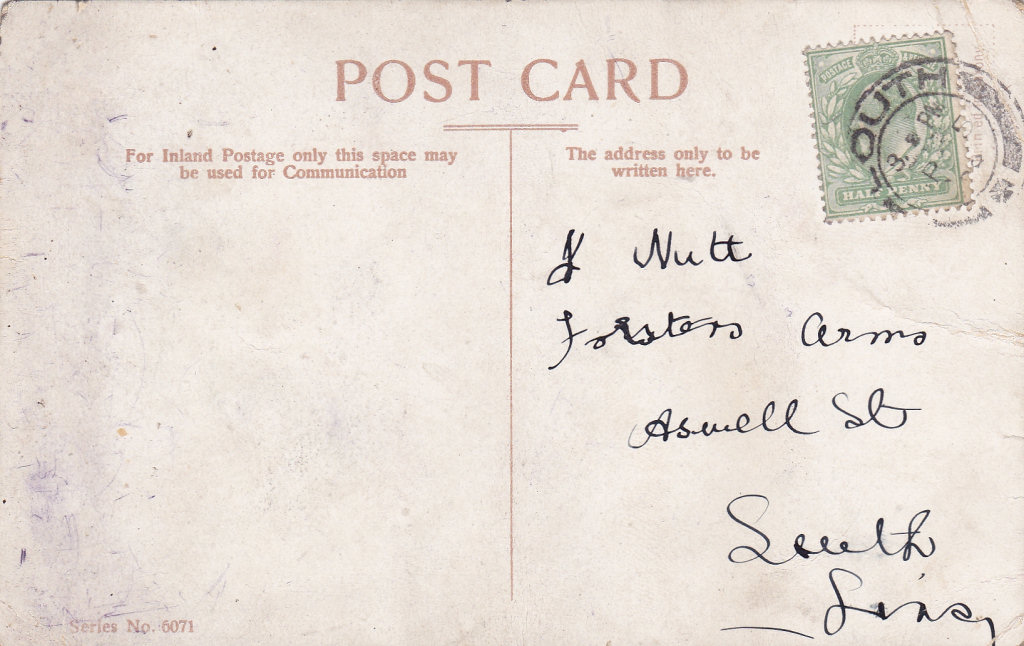 POST CARD
For Inland Postage only this space may
be used for Communication
The address only to be
written here.
POSTAGE
HALF PENNY
LOUTH
Nutt
Forsters Arms
Aswell St
Louth
Lincs,
Series No. 6071